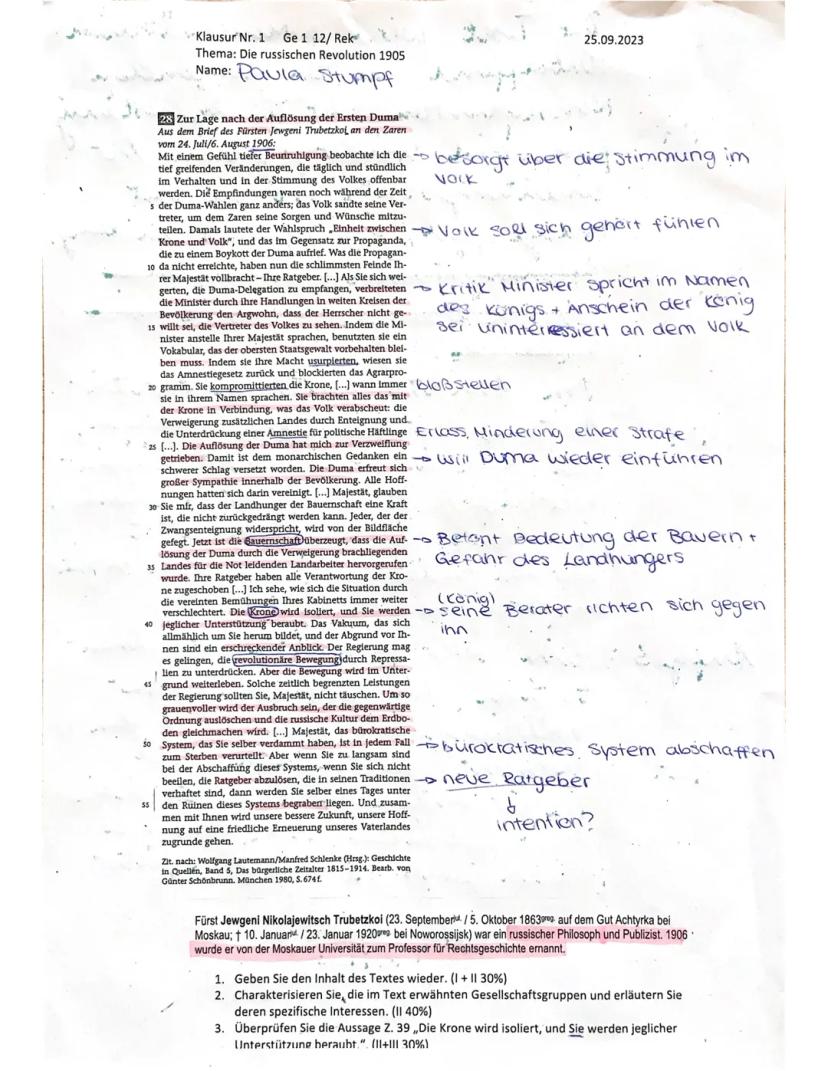 Klausur Nr. 1 Ge 1 12/ Rek 25.09.2023
Thema: Die russischen Revolution 1905
Name: Paula Stumpf
28 Zur Lage nach der Auflösung der Ersten Duma
Aus dem Brief des Fürsten Jewgeni Trubetzkoi an den Zaren
vom 24. Juli/6. August 1906:
Mit einem Gefühl tiefer Beunruhigung beobachte ich die
tief greifenden Veränderungen, die täglich und stündlich
im Verhalten und in der Stimmung des Volkes offenbar
werden. Die Empfindungen waren noch während der Zeit
5 der Duma-Wahlen ganz anders; das Volk sandte seine Ver-
treter, um dem Zaren seine Sorgen und Wünsche mitzu-
teilen. Damals lautete der Wahlspruch „Einheit zwischen
Krone und Volk", und das im Gegensatz zur Propaganda,
die zu einem Boykott der Duma aufrief. Was die Propagan-
10 da nicht erreichte, haben nun die schlimmsten Feinde Ih-
rer Majestät vollbracht – Ihre Ratgeber. [...] Als Sie sich wei-
gerten, die Duma-Delegation zu empfangen, verbreiteten
die Minister durch ihre Handlungen in weiten Kreisen der
Bevölkerung den Argwohn, dass der Herrscher nicht ge-
15 willt sei, die Vertreter des Volkes zu sehen. Indem die Mi-
nister anstelle Ihrer Majestät sprachen, benutzten sie ein
Vokabular, das der obersten Staatsgewalt vorbehalten blei-
ben muss. Indem sie ihre Macht usurpierten, wiesen sie
das Amnestiegesetz zurück und blockierten das Agrarpro-
20 gramm. Sie kompromittierten die Krone, [...] wann immer
sie in ihrem Namen sprachen. Sie brachten alles das mit
der Krone in Verbindung, was das Volk verabscheut: die
Verweigerung zusätzlichen Landes durch Enteignung und
die Unterdrückung einer Amnestie für politische Häftlinge
25 [...]. Die Auflösung der Duma hat mich zur Verzweiflung
getrieben. Damit ist dem monarchischen Gedanken ein
schwerer Schlag versetzt worden. Die Duma erfreut sich
großer Sympathie innerhalb der Bevölkerung. Alle Hoff-
nungen hatten sich darin vereinigt. [...] Majestät, glauben
30 Sie mir, dass der Landhunger der Bauernschaft eine Kraft
ist, die nicht zurückgedrängt werden kann. Jeder, der der
Zwangsenteignung widerspricht, wird von der Bildfläche
gefegt. Jetzt ist die Bauernschaft überzeugt, dass die Auf-
lösung der Duma durch die Verweigerung brachliegenden
35 Landes für die Not leidenden Landarbeiter hervorgerufen
wurde. Ihre Ratgeber haben alle Verantwortung der Kro-
ne zugeschoben [...] Ich sehe, wie sich die Situation durch
die vereinten Bemühungen Ihres Kabinetts immer weiter
verschlechtert. Die Krone wird isoliert, und Sie werden
40 jeglicher Unterstützung beraubt. Das Vakuum, das sich
allmählich um Sie herum bildet, und der Abgrund vor Ih-
nen sind ein erschreckender Anblick. Der Regierung mag
es gelingen, die revolutionäre Bewegung durch Repressa-
lien zu unterdrücken. Aber die Bewegung wird im Unter-
45 grund weiterleben. Solche zeitlich begrenzten Leistungen
der Regierung sollten Sie, Majestät, nicht täuschen. Um so
grauenvoller wird der Ausbruch sein, der die gegenwärtige
Ordnung auslöschen und die russische Kultur dem Erdbo-
den gleichmachen wird. [...] Majestät, das bürokratische
50 System, das Sie selber verdammt haben, ist in jedem Fall
zum Sterben verurteilt. Aber wenn Sie zu langsam sind
bei der Abschaffung dieses Systems, wenn Sie sich nicht
beeilen, die Ratgeber abzulösen, die in seinen Traditionen
verhaftet sind, dann werden Sie selber eines Tages unter
55 den Ruinen dieses Systems begraben liegen. Und zusam-
men mit Ihnen wird unsere bessere Zukunft, unsere Hoff-
nung auf eine friedliche Erneuerung unseres Vaterlandes
zugrunde gehen.
Zit. nach: Wolfgang Lautemann/Manfred Schlenke (Hrsg.): Geschichte
in Quellen, Band 5, Das bürgerliche Zeitalter 1815–1914. Bearb. von
Günter Schönbrunn. München 1980, S. 674 f.
→ besorgt über die Stimmung im
Volk
→ Volk soll sich gehört fühlen
→ Kritik Minister spricht im Namen
des Königs + Anschein der König
sei uninteressiert an dem Volk
bloßstellen
Erlass, Minderung einer Strafe
→ will Duma wieder einführen
→ Betont Bedeutung der Bauern +
Gefahr des Landhungers
(König)
→ seine Berater richten sich gegen
ihn
→ bürokratisches System abschaffen
→ neue Ratgeber
↓
intention?
Fürst Jewgeni Nikolajewitsch Trubetzkoi (23. Septemberjul. / 5. Oktober 1863greg. auf dem Gut Achtyrka bei
Moskau; † 10. Januarjul. / 23. Januar 1920greg. bei Noworossijsk) war ein russischer Philosoph und Publizist. 1906
wurde er von der Moskauer Universität zum Professor für Rechtsgeschichte ernannt.
1. Geben Sie den Inhalt des Textes wieder. (I + II 30%)
2. Charakterisieren Sie die im Text erwähnten Gesellschaftsgruppen und erläutern Sie
deren spezifische Interessen. (II 40%)
3. Überprüfen Sie die Aussage Z. 39 „Die Krone wird isoliert, und Sie werden jeglicher
Unterstützung beraubt.". (II+III 30%)